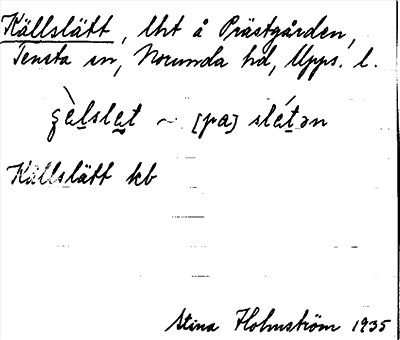 Källslätt, lht å Prästgården,
Tensta sn, Norunda hd, Upps. l.
ʒèlslet ~ [pa] slétən
Källslätt kb
Stina Holmström 1935